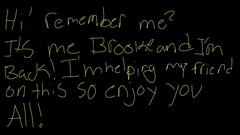 Hi! remember me?
It's me Brooke and I'm
Back! I'm helping my friend
on this so enjoy you
All!